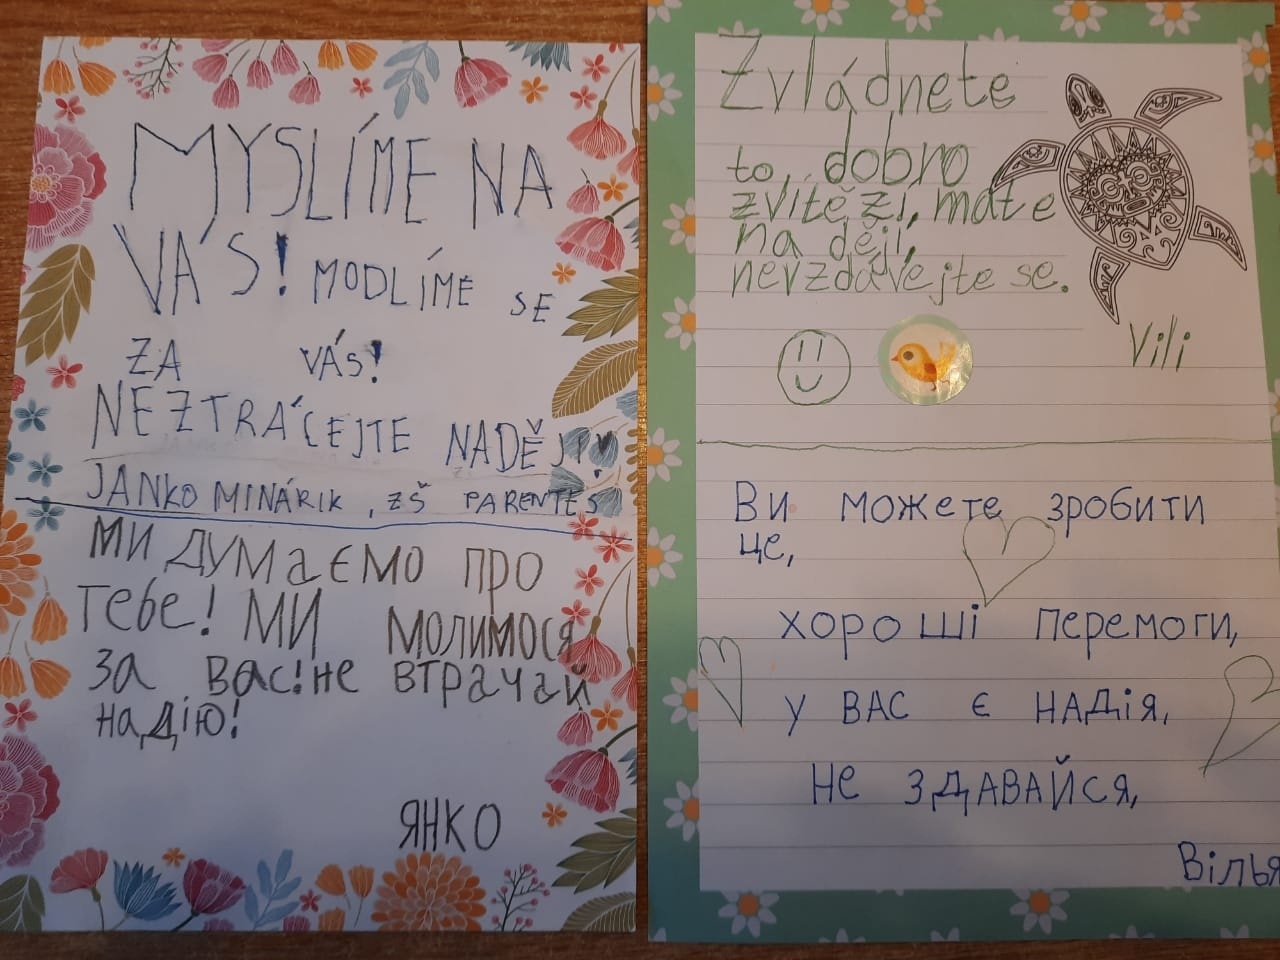 MYSLÍME NA
VÁS! MODLÍME SE
ZA VÁS!
NEZTRÁCEJTE NADĚJI!
JANKO MINÁRIK, ZŠ PARENTES
МИ ДУМАЄМО ПРО
Тебе! МИ МОЛИМОСЯ
За вас! не втрачай
надію!
ЯНКО
Zvládnete
to, dobro
zvítězí, máte
na ději,
nevzdávejte se.
Vili
Ви можете зробити
це,
хороші перемоги,
у ВАС є НАДІЯ,
Не ЗДАВАЙСЯ,
Вілья